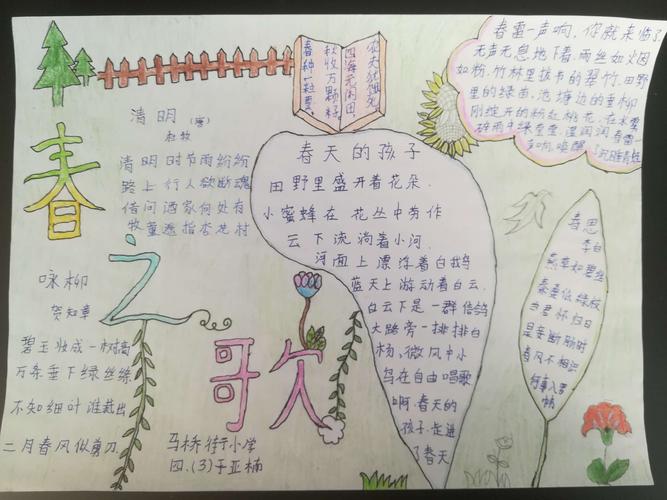 春之歌
春种一粒粟,
秋收万颗籽,
四海无闲田,
农夫犹饿死
清明 (唐)
杜牧
清明时节雨纷纷
路上行人欲断魂
借问酒家何处有
牧童遥指杏花村
咏柳
贺知章
碧玉妆成一树高
万条垂下绿丝绦
不知细叶谁裁出
二月春风似剪刀
春天的孩子
田野里盛开着花朵
小蜜蜂在花丛中劳作
云下流淌着小河
河面上漂浮着白鹅
蓝天上游动着白云
白云下是一群信鸽
大路旁一排排白
杨、微风中小
鸟在自由唱歌
啊,春天的
孩子,走进
了春天
春雷一声响,你就来临了
无声无息地下着,雨丝如烟
如粉,竹林里拔节的翠竹,田野
里的绿苗,池塘边的垂柳
刚绽开的粉红桃花,在水雾
春思
李白
燕草如碧丝
秦桑低绿枝
当君怀归日
是妾断肠时
春风不相识
何事入罗
帏
马桥街小学
四.(3)于亚楠